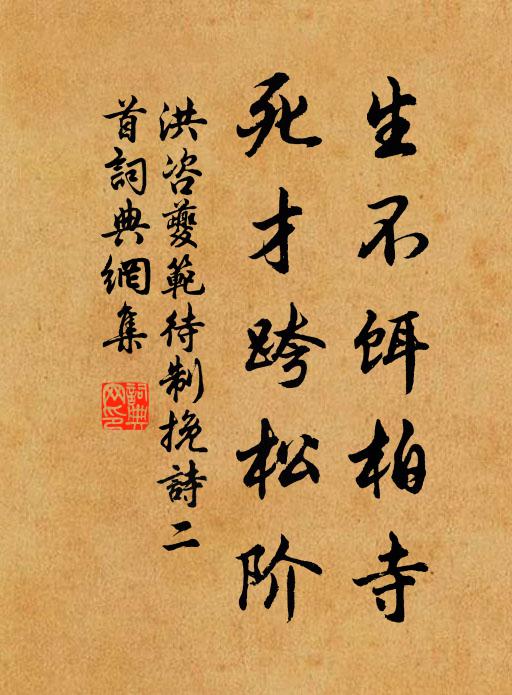 生不饵柏寺
死才跨松阶
洪咨夔範待制挽詩二
首詞典網集
詞典网印